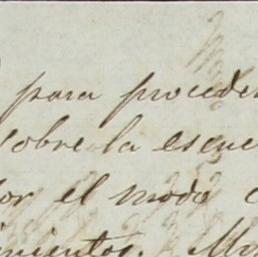 para proceder
sobre la esenc
por el modo
imientos.